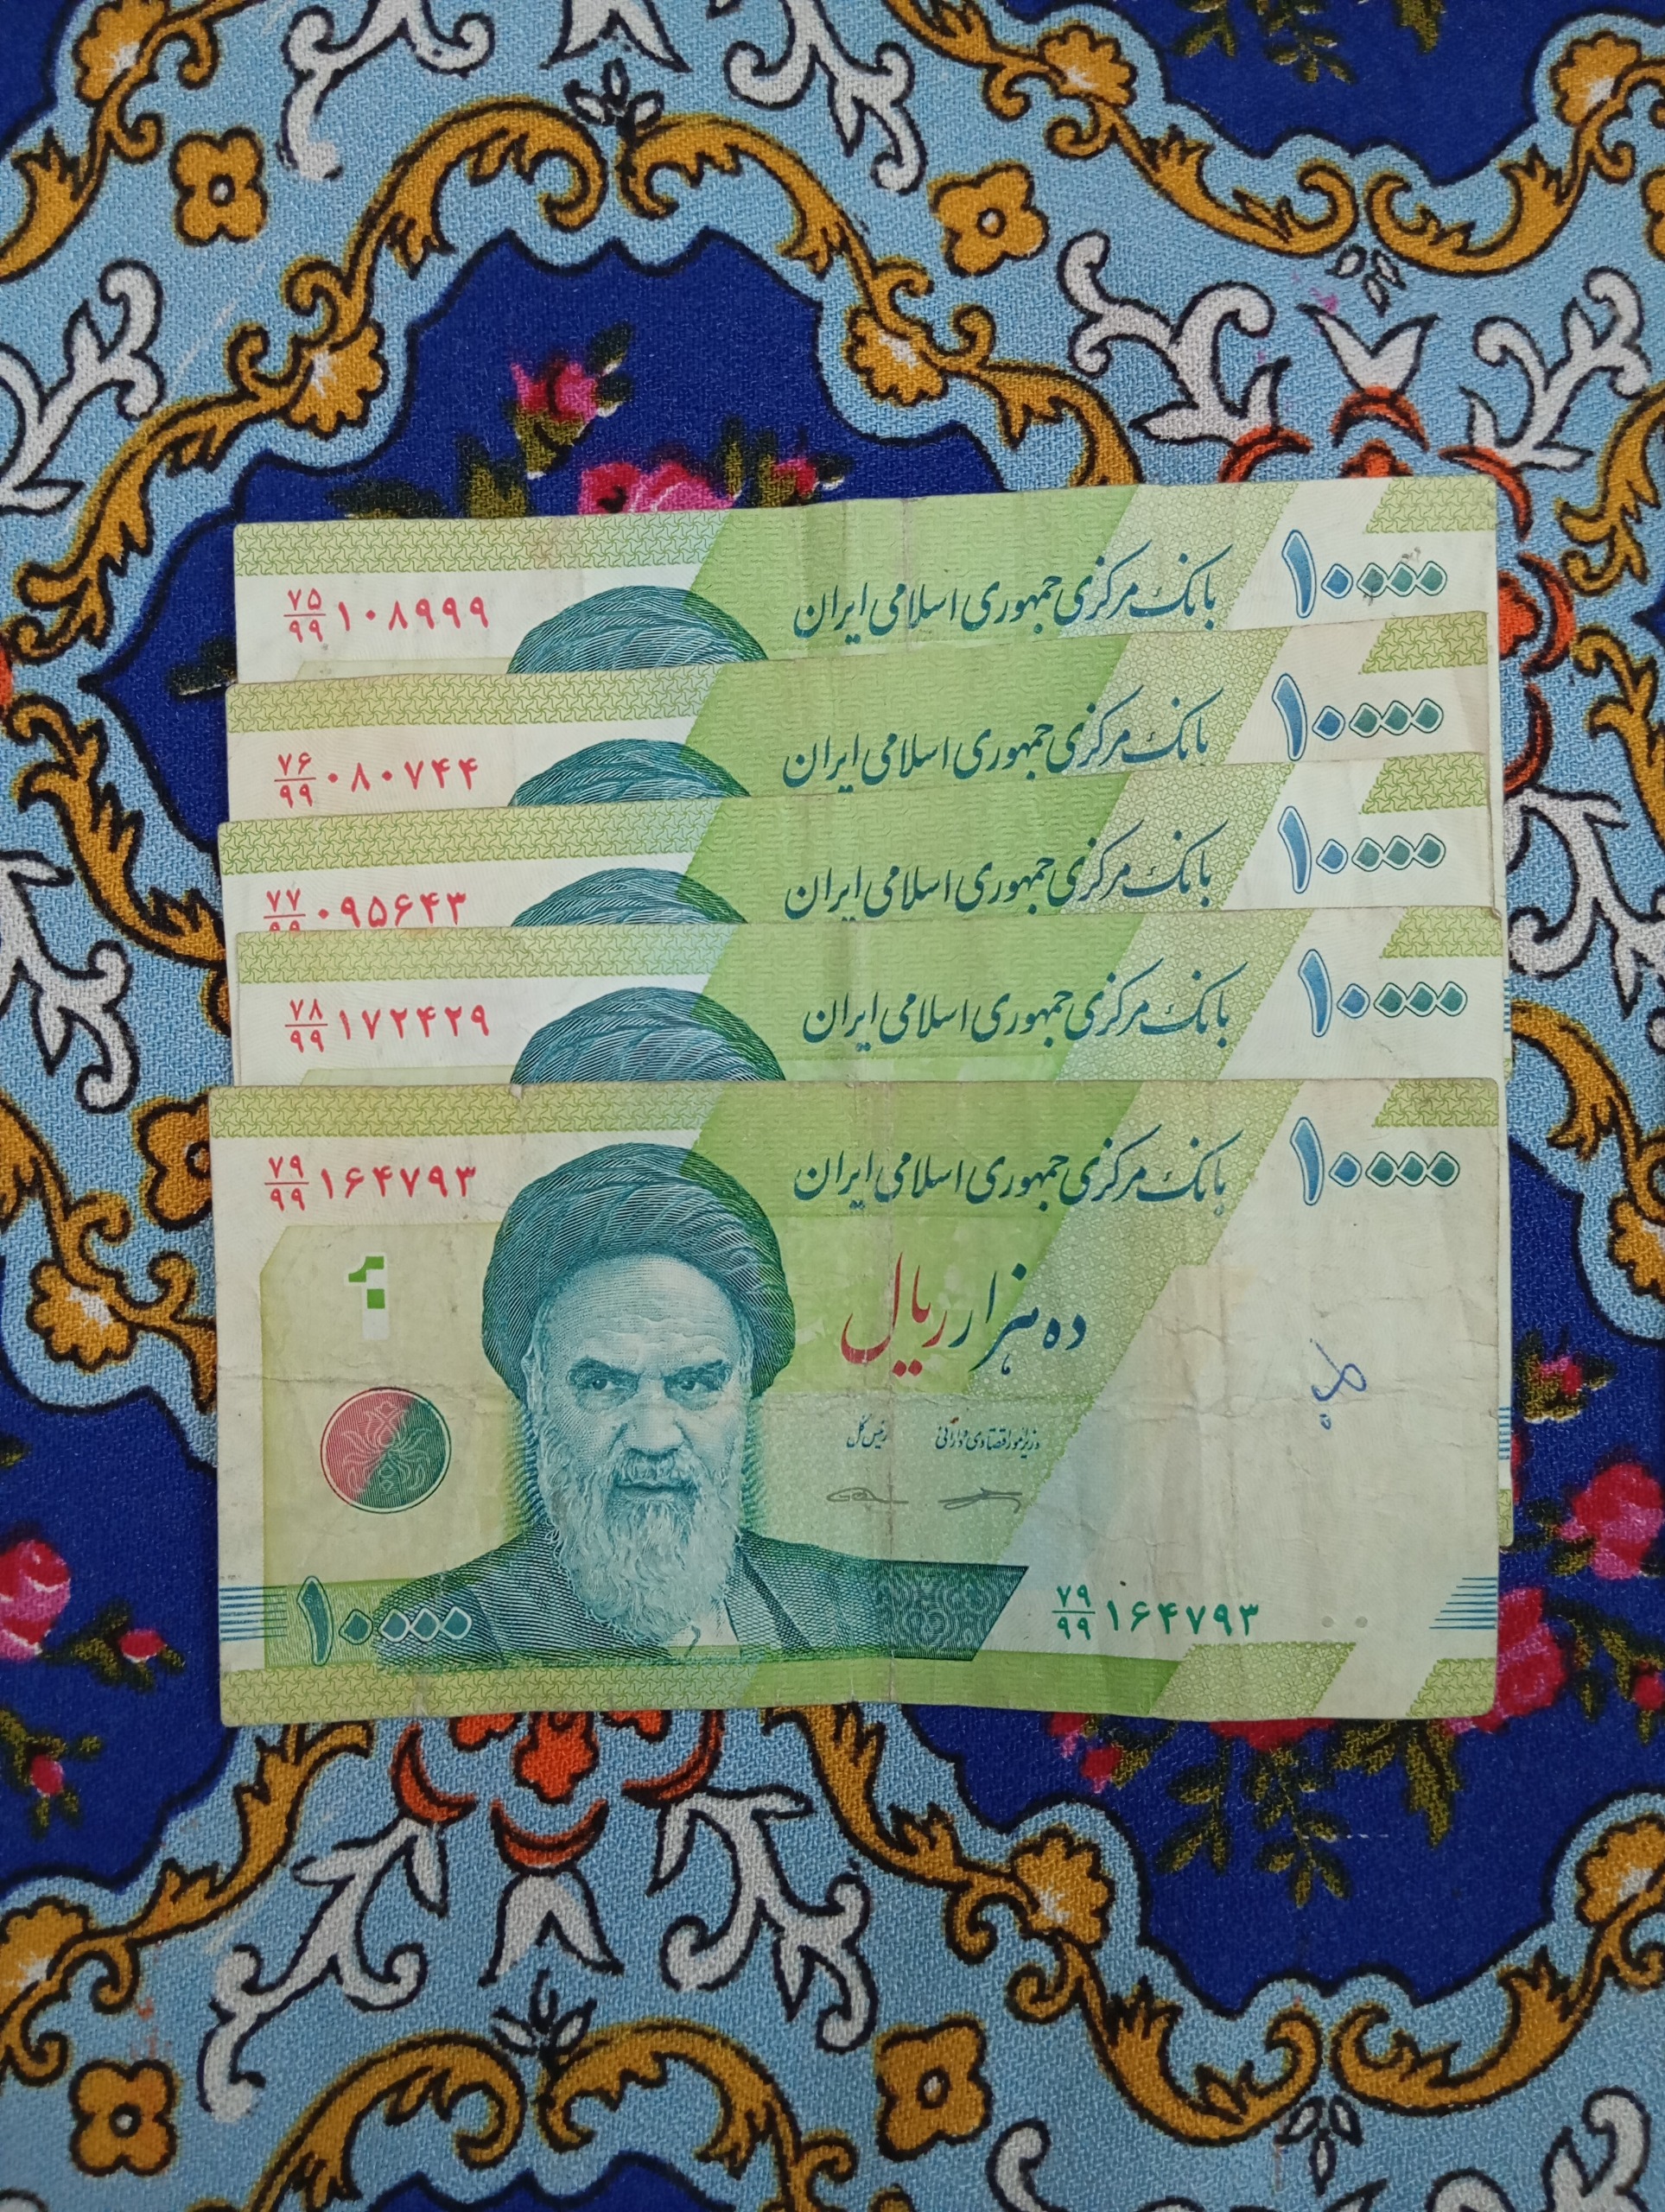 ۱۰۰۰۰
بانک مرکزی جمهوری اسلامی ایران
۷۵/۹۹ ۱۰۸۹۹۹
۱۰۰۰۰
بانک مرکزی جمهوری اسلامی ایران
۷۶/۹۹ ۰۸۰۷۴۴
۱۰۰۰۰
بانک مرکزی جمهوری اسلامی ایران
۷۷/۹۹ ۰۹۵۶۴۳
۱۰۰۰۰
بانک مرکزی جمهوری اسلامی ایران
۷۸/۹۹ ۱۷۲۴۲۹
۱۰۰۰۰
بانک مرکزی جمهوری اسلامی ایران
۷۹/۹۹ ۱۶۴۷۹۳
ده هزار ریال
وزیر امور اقتصادی و دارائی
رئیس کل
۷۹/۹۹ ۱۶۴۷۹۳
۱۰۰۰۰